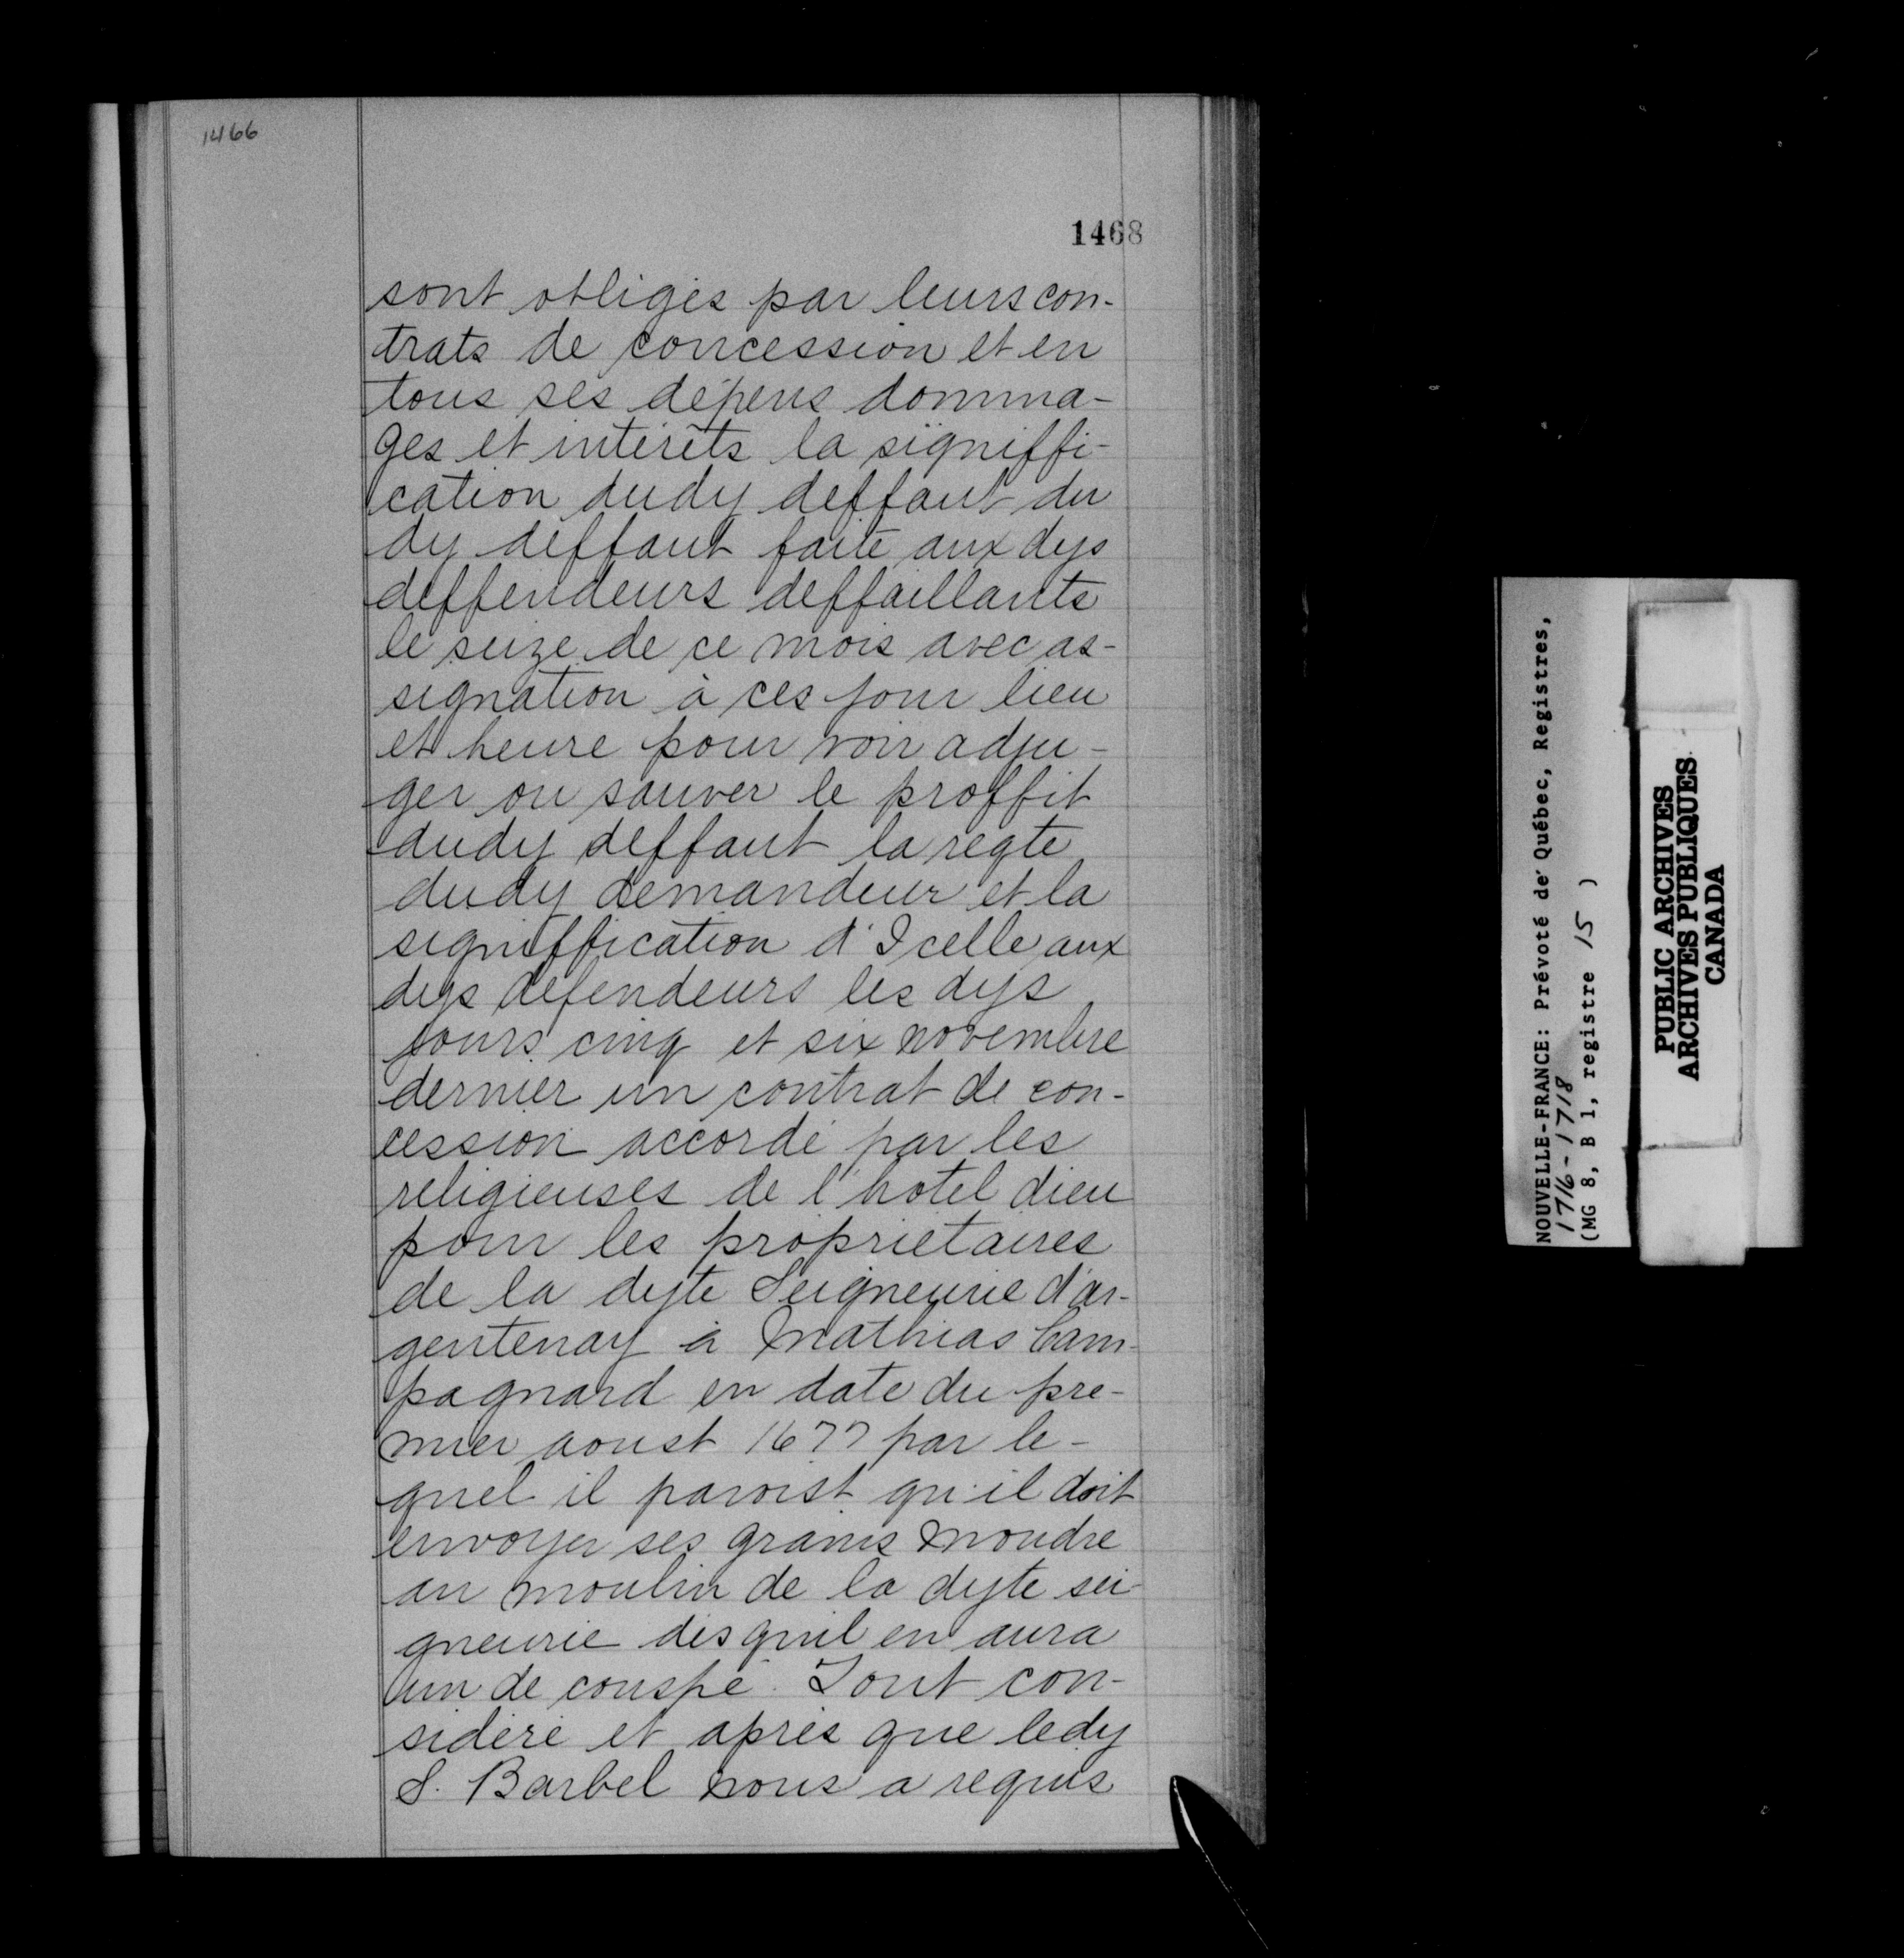 1466
1468
sont obligés par leurs con-
trats de concession et en
tous ses dépens domma-
ges et intérêts la signiffi-
cation dudy deffaut du
dy deffaut faite aux dys
deffendeurs deffaillants
le seize de ce mois avec as-
signation à ces jour lieu
et heure pour voir adju-
ger ou sauver le proffit
dudy deffaut la reqte
dudy demandeur et la
signiffication d'Icelle aux
dys défendeurs les dys
jours cinq et six novembre
dernier un contrat de con-
cession accordé par les
religieuses de l'hotel dieu
pour les propriétaires
de la dyte Seigneurie d'ar-
gentenay à Mathias Cam-
pagnard en date du pre-
mier aoust 1677 par le-
quel il paroist qu'il doit
envoyer ses grains moudre
au moulin de la dyte sei
gneurie dès quil en aura
un de couspé. Tout con-
sidéré et après que ledy
S. Barbel nous a requis
NOUVELLE-FRANCE: Prévoté de Québec, Registres,
1716-1718
(MG 8, B 1, registre 15 )
PUBLIC ARCHIVES
ARCHIVES PUBLIQUES
CANADA